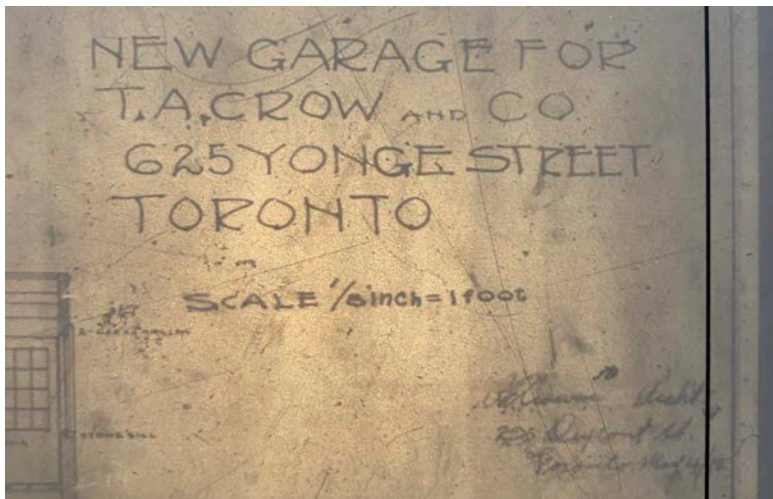 NEW GARAGE FOR
T.A. CROW AND CO
625 YONGE STREET
TORONTO
SCALE 1/8 inch = 1 foot
STONE SILL
Dupont St.
Toronto, May